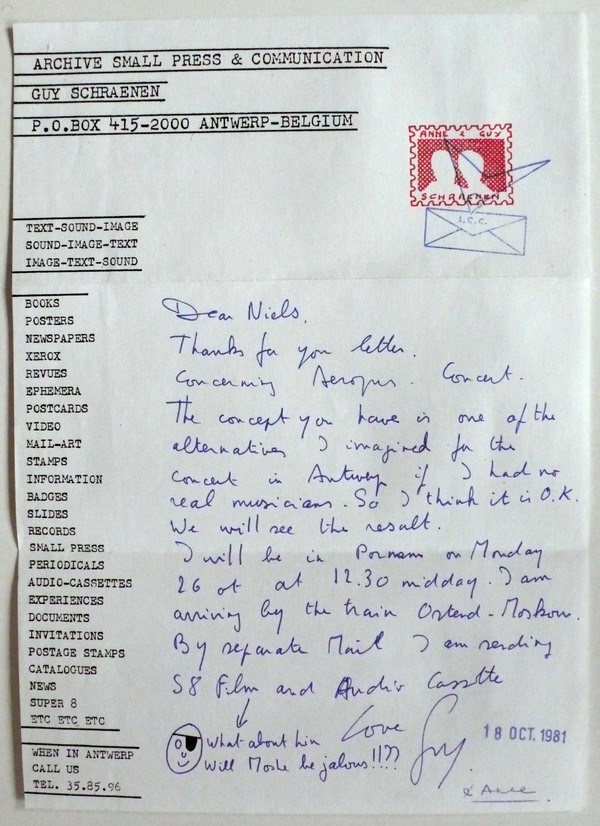 ARCHIVE SMALL PRESS & COMMUNICATION
GUY SCHRAENEN
P.O.BOX 415-2000 ANTWERP-BELGIUM
ANNE & GUY
SCHRAENEN
I.C.C.
TEXT-SOUND-IMAGE
SOUND-IMAGE-TEXT
IMAGE-TEXT-SOUND
BOOKS
POSTERS
NEWSPAPERS
XEROX
REVUES
EPHEMERA
POSTCARDS
VIDEO
MAIL-ART
STAMPS
INFORMATION
BADGES
SLIDES
RECORDS
SMALL PRESS
PERIODICALS
AUDIO-CASSETTES
EXPERIENCES
DOCUMENTS
INVITATIONS
POSTAGE STAMPS
CATALOGUES
NEWS
SUPER 8
ETC ETC ETC
WHEN IN ANTWERP
CALL US
TEL. 35.85.96
Dear Niels,
Thanks for your letter.
Concerning Aeropus. Concert.
The concept you have is one of the
alternatives I imagined for the
concert in Antwerp if I had no
real musicians. So I think it is O.K.
We will see the result.
I will be in Poznam on Monday
26 ot at 12.30 midday. I am
arriving by the train Ostend-Moskow.
By separate Mail I am sending
S8 Film and Audio Cassette
Love Guy.
18 OCT. 1981
What about him
Will Moshe be jalous!!??
& Anne